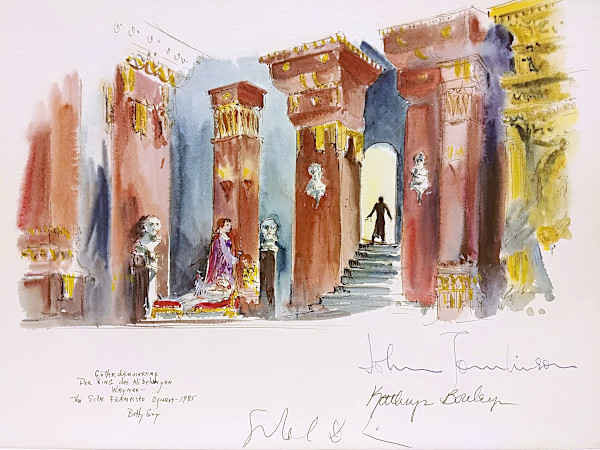 Götterdämmerung
Der Ring des Nibelungen
Wagner—
The San Francisco Opera-1985
Betty Guy
John Tomlinson
Kathryn Bouleyn